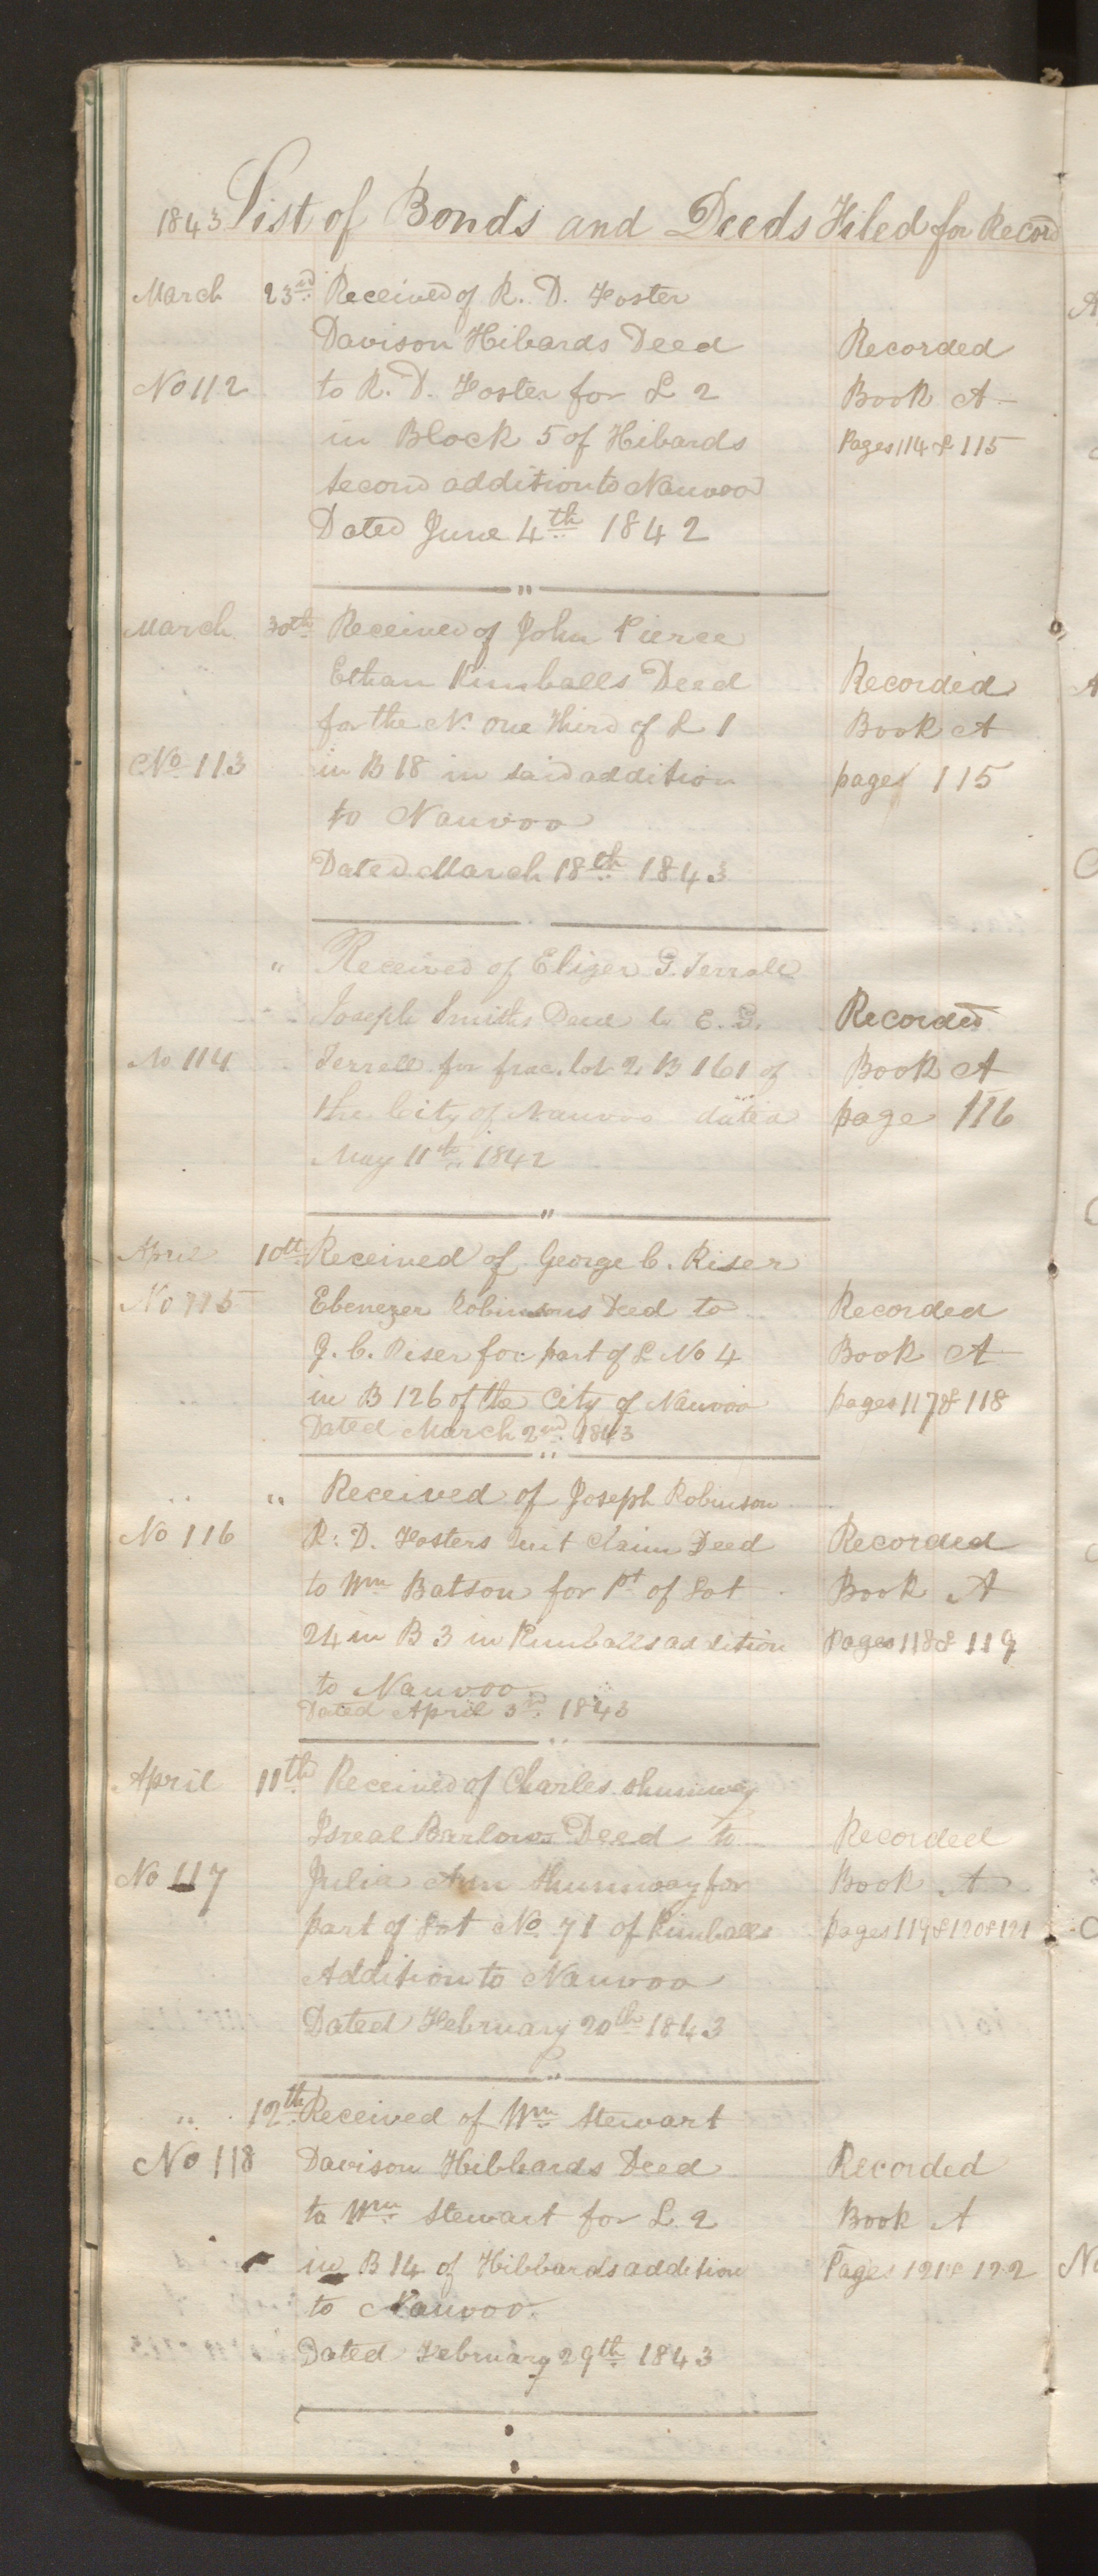 1843 List of Bonds and Deeds Filed for Record
March 23rd Received of R. D. Foster
Davison Hibards Deed Recorded
No 112 to R. D. Foster for L 2 Book A
in Block 5 of Hibards Pages 114 & 115
second addition to Nauvoo
Dated June 4th 1842
March 30th Received of John Pierce
Ethan Kimballs Deed Recorded
for the N. one third of L 1 Book A
No 113 in B 18 in said addition pages 115
to Nauvoo
Dated March 18th 1843
" Received of Elizer G. Terrell
Joseph Smiths Deed to E. G. Recorded
No 114 Terrell for frac. lot 2 B 161 of Book A
the City of Nauvoo dated page 116
May 11th 1842
April 10th Received of George C. Riser
No 115 Ebenezer Robinsons Deed to Recorded
G. C. Riser for part of L No 4 Book A
in B 126 of the City of Nauvoo pages 117 & 118
Dated March 2nd 1843
" " Received of Joseph Robinson
No 116 R. D. Fosters Quit Claim Deed Recorded
to Wm Batson for Pt of Lot Book A
24 in B 3 in Kimballs addition Pages 118 & 119
to Nauvoo
Dated April 3rd 1843
April 11th Received of Charles Shumway
Isreal Barlows Deed to Recorded
No 117 Julia Ann Shumway for Book A
part of Lot No 71 of Kimballs pages 119 & 120 & 121
Addition to Nauvoo
Dated February 20th 1843
" 12th Received of Wm Stewart
No 118 Davison Hibbards Deed Recorded
to Wm Stewart for L. 2 Book A
in B 14 of Hibbards addition Pages 121 & 122
to Nauvoo.
Dated February 29th 1843